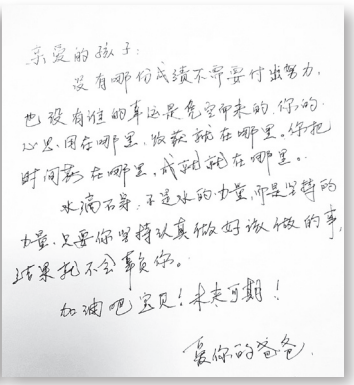 亲爱的孩子:
没有哪份成绩不需要付出努力,
也没有谁的幸运是凭空而来的,你的
心思用在哪里,收获就在哪里。你把
时间花在哪里,成就就在哪里。
水滴石穿,不是水的力量,而是坚持的
力量,只要你坚持认真做好该做的事,
结果就不会辜负你。
加油吧宝贝!未来可期!
爱你的爸爸.